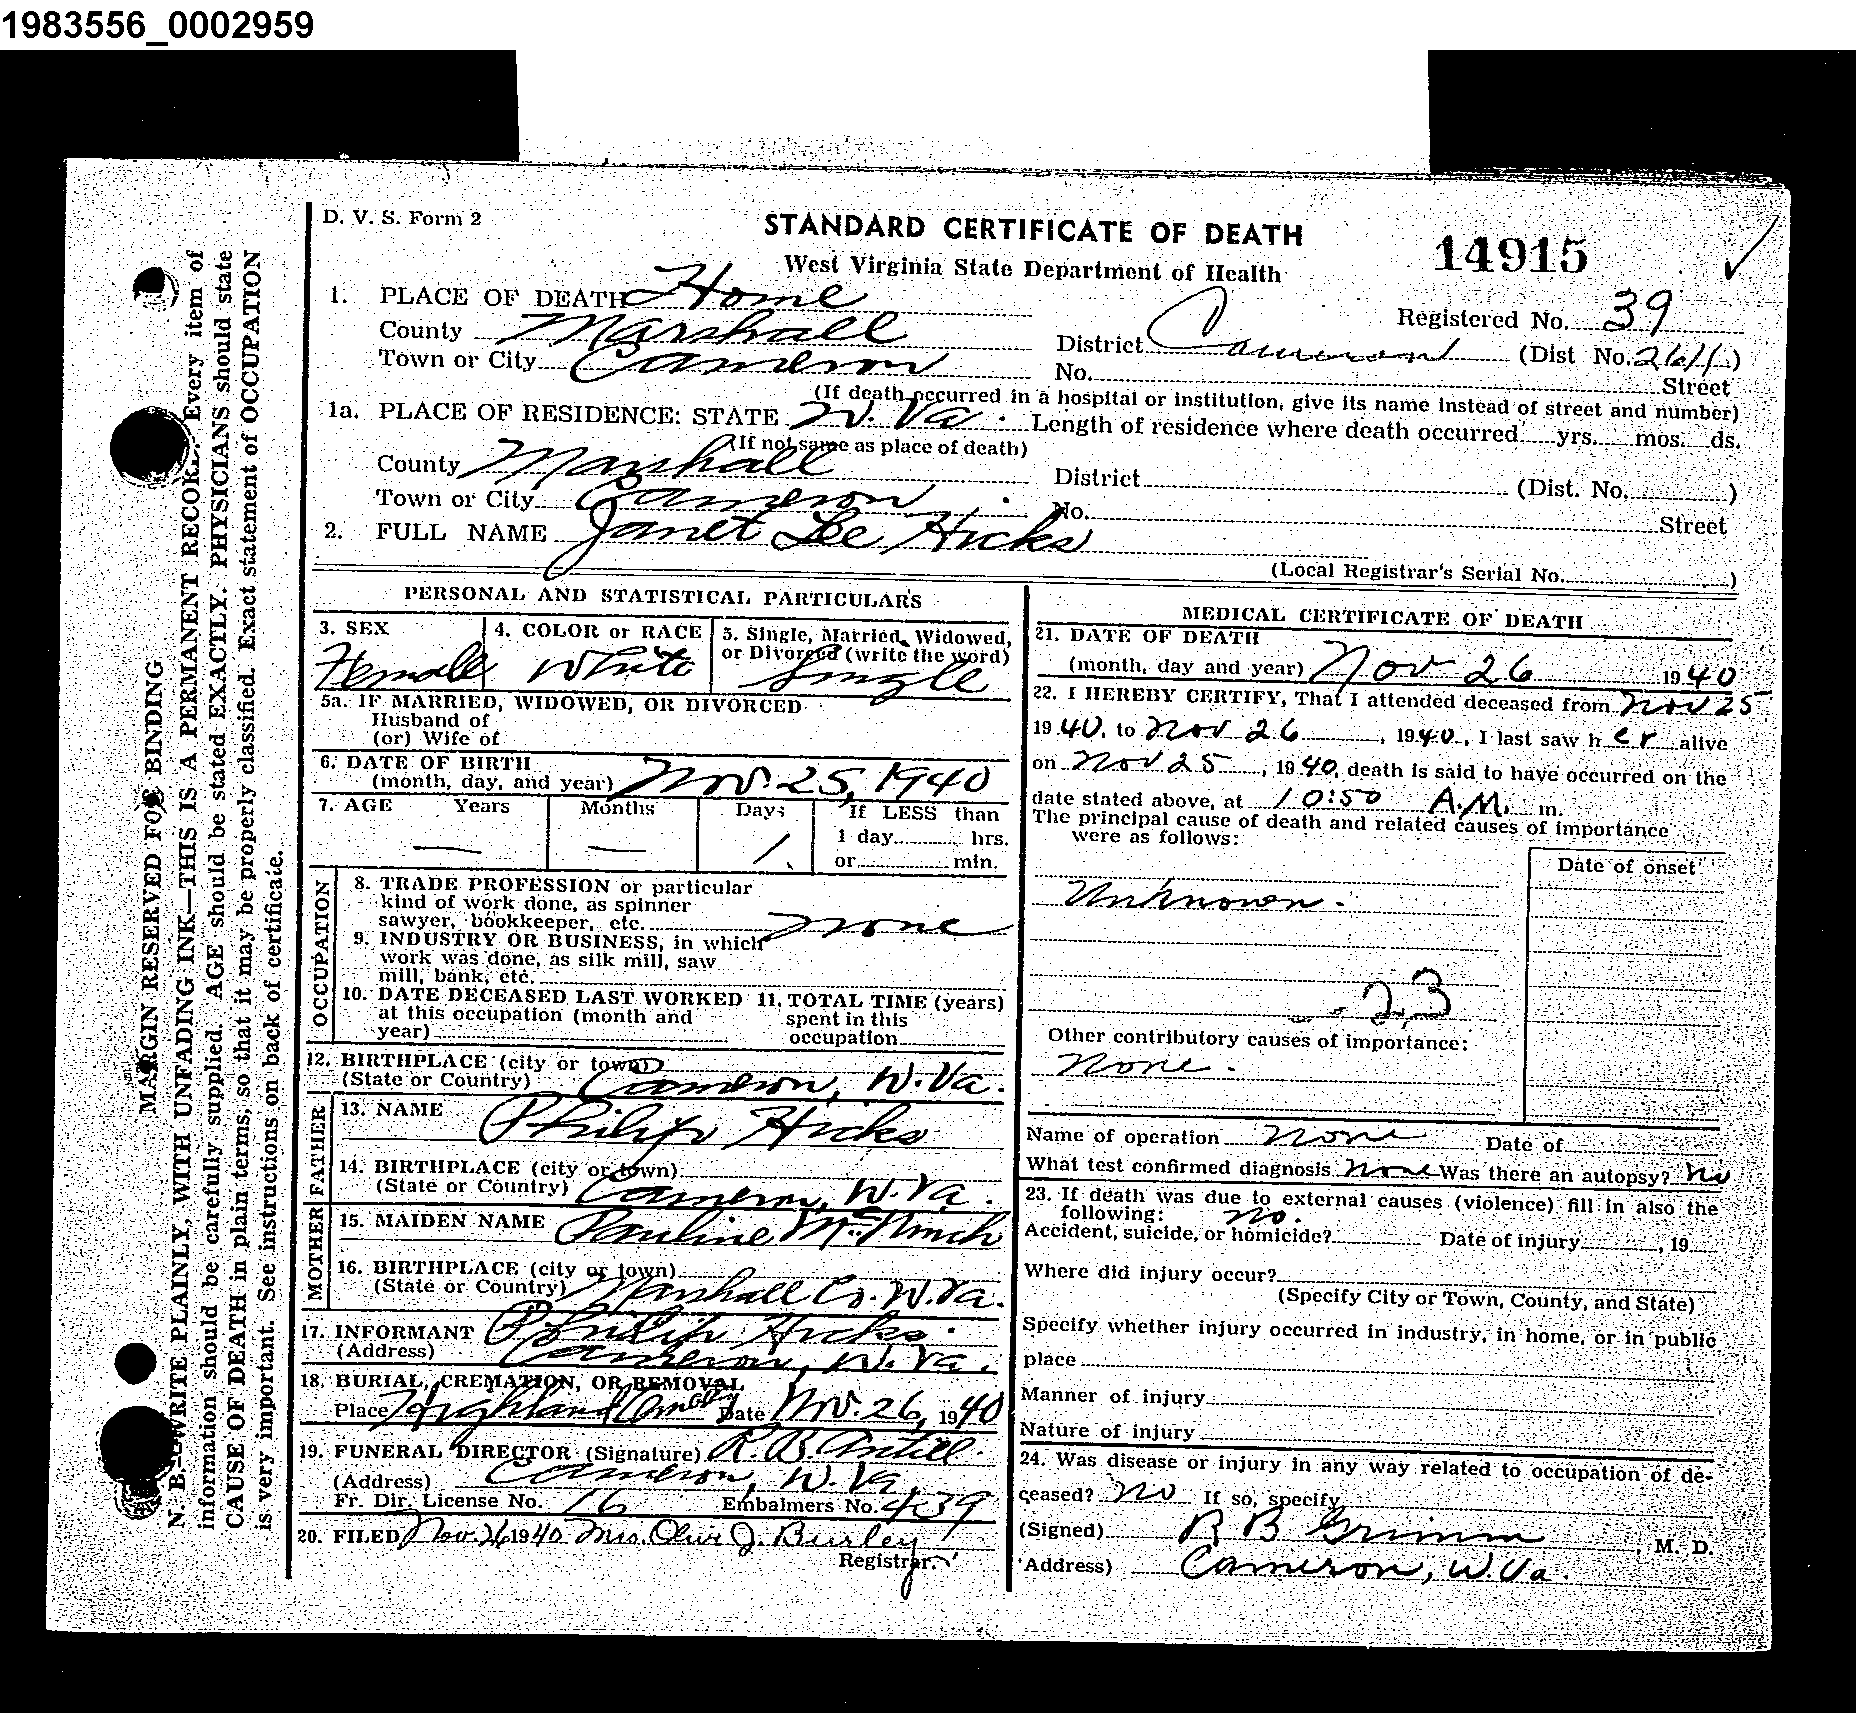 1983556_0002959
D. V. S. Form 2
STANDARD CERTIFICATE OF DEATH
West Virginia State Department of Health
14915
1. PLACE OF DEATH Home
Registered No. 39
County Marshall
District Cameron (Dist No. 2611)
Town or City Cameron
No. Street
(If death occurred in a hospital or institution, give its name instead of street and number)
1a. PLACE OF RESIDENCE: STATE W. Va. Length of residence where death occurred yrs. mos. ds.
(If not same as place of death)
County Marshall
District (Dist. No. )
Town or City Cameron
No. Street
2. FULL NAME Janet Lee Hicks
(Local Registrar's Serial No. )
PERSONAL AND STATISTICAL PARTICULARS
3. SEX Female
4. COLOR or RACE White
5. Single, Married, Widowed, or Divorced (write the word) Single
5a. IF MARRIED, WIDOWED, OR DIVORCED
Husband of
(or) Wife of
6. DATE OF BIRTH
(month, day, and year) Nov. 25, 1940
7. AGE Years Months Days If LESS than
1 day hrs.
— — 1. or min.
OCCUPATION
8. TRADE PROFESSION or particular
kind of work done, as spinner
sawyer, bookkeeper, etc. none
9. INDUSTRY OR BUSINESS, in which
work was done, as silk mill, saw
mill, bank, etc.
10. DATE DECEASED LAST WORKED
at this occupation (month and
year)
11. TOTAL TIME (years)
spent in this
occupation
12. BIRTHPLACE (city or town)
(State or Country) Cameron, W. Va.
FATHER
13. NAME Philip Hicks
14. BIRTHPLACE (city or town)
(State or Country) Cameron, W. Va.
MOTHER
15. MAIDEN NAME Pauline
16. BIRTHPLACE (city or town)
(State or Country) Marshall Co. W. Va.
17. INFORMANT Philip Hicks
(Address) Cameron, W. Va.
18. BURIAL, CREMATION, OR REMOVAL
Place Highland Date Nov. 26, 1940
19. FUNERAL DIRECTOR (Signature) R. B. Antill
(Address) Cameron, W. Va.
Fr. Dir. License No. 16 Embalmers No. 439
20. FILED Nov. 26 1940 Mrs. Olive J. Burley
Registrar.
MEDICAL CERTIFICATE OF DEATH
21. DATE OF DEATH
(month, day and year) Nov 26 1940
22. I HEREBY CERTIFY, That I attended deceased from Nov 25
1940, to Nov 26, 1940, I last saw her alive
on Nov 25, 1940, death is said to have occurred on the
date stated above, at 10:50 A.M. m.
The principal cause of death and related causes of importance
were as follows:
Date of onset
Unknown.
23
Other contributory causes of importance:
None.
Name of operation none Date of
What test confirmed diagnosis none Was there an autopsy? No
23. If death was due to external causes (violence) fill in also the
following: no.
Accident, suicide, or homicide? Date of injury , 19
Where did injury occur?
(Specify City or Town, County, and State)
Specify whether injury occurred in industry, in home, or in public
place
Manner of injury
Nature of injury
24. Was disease or injury in any way related to occupation of de-
ceased? No If so, specify
(Signed) R B Grimm, M. D.
(Address) Cameron, W. Va.
MARGIN RESERVED FOR BINDING
N. B.—WRITE PLAINLY, WITH UNFADING INK—THIS IS A PERMANENT RECORD. Every item of
information should be carefully supplied. AGE should be stated EXACTLY. PHYSICIANS should state
CAUSE OF DEATH in plain terms, so that it may be properly classified. Exact statement of OCCUPATION
is very important. See instructions on back of certificate.